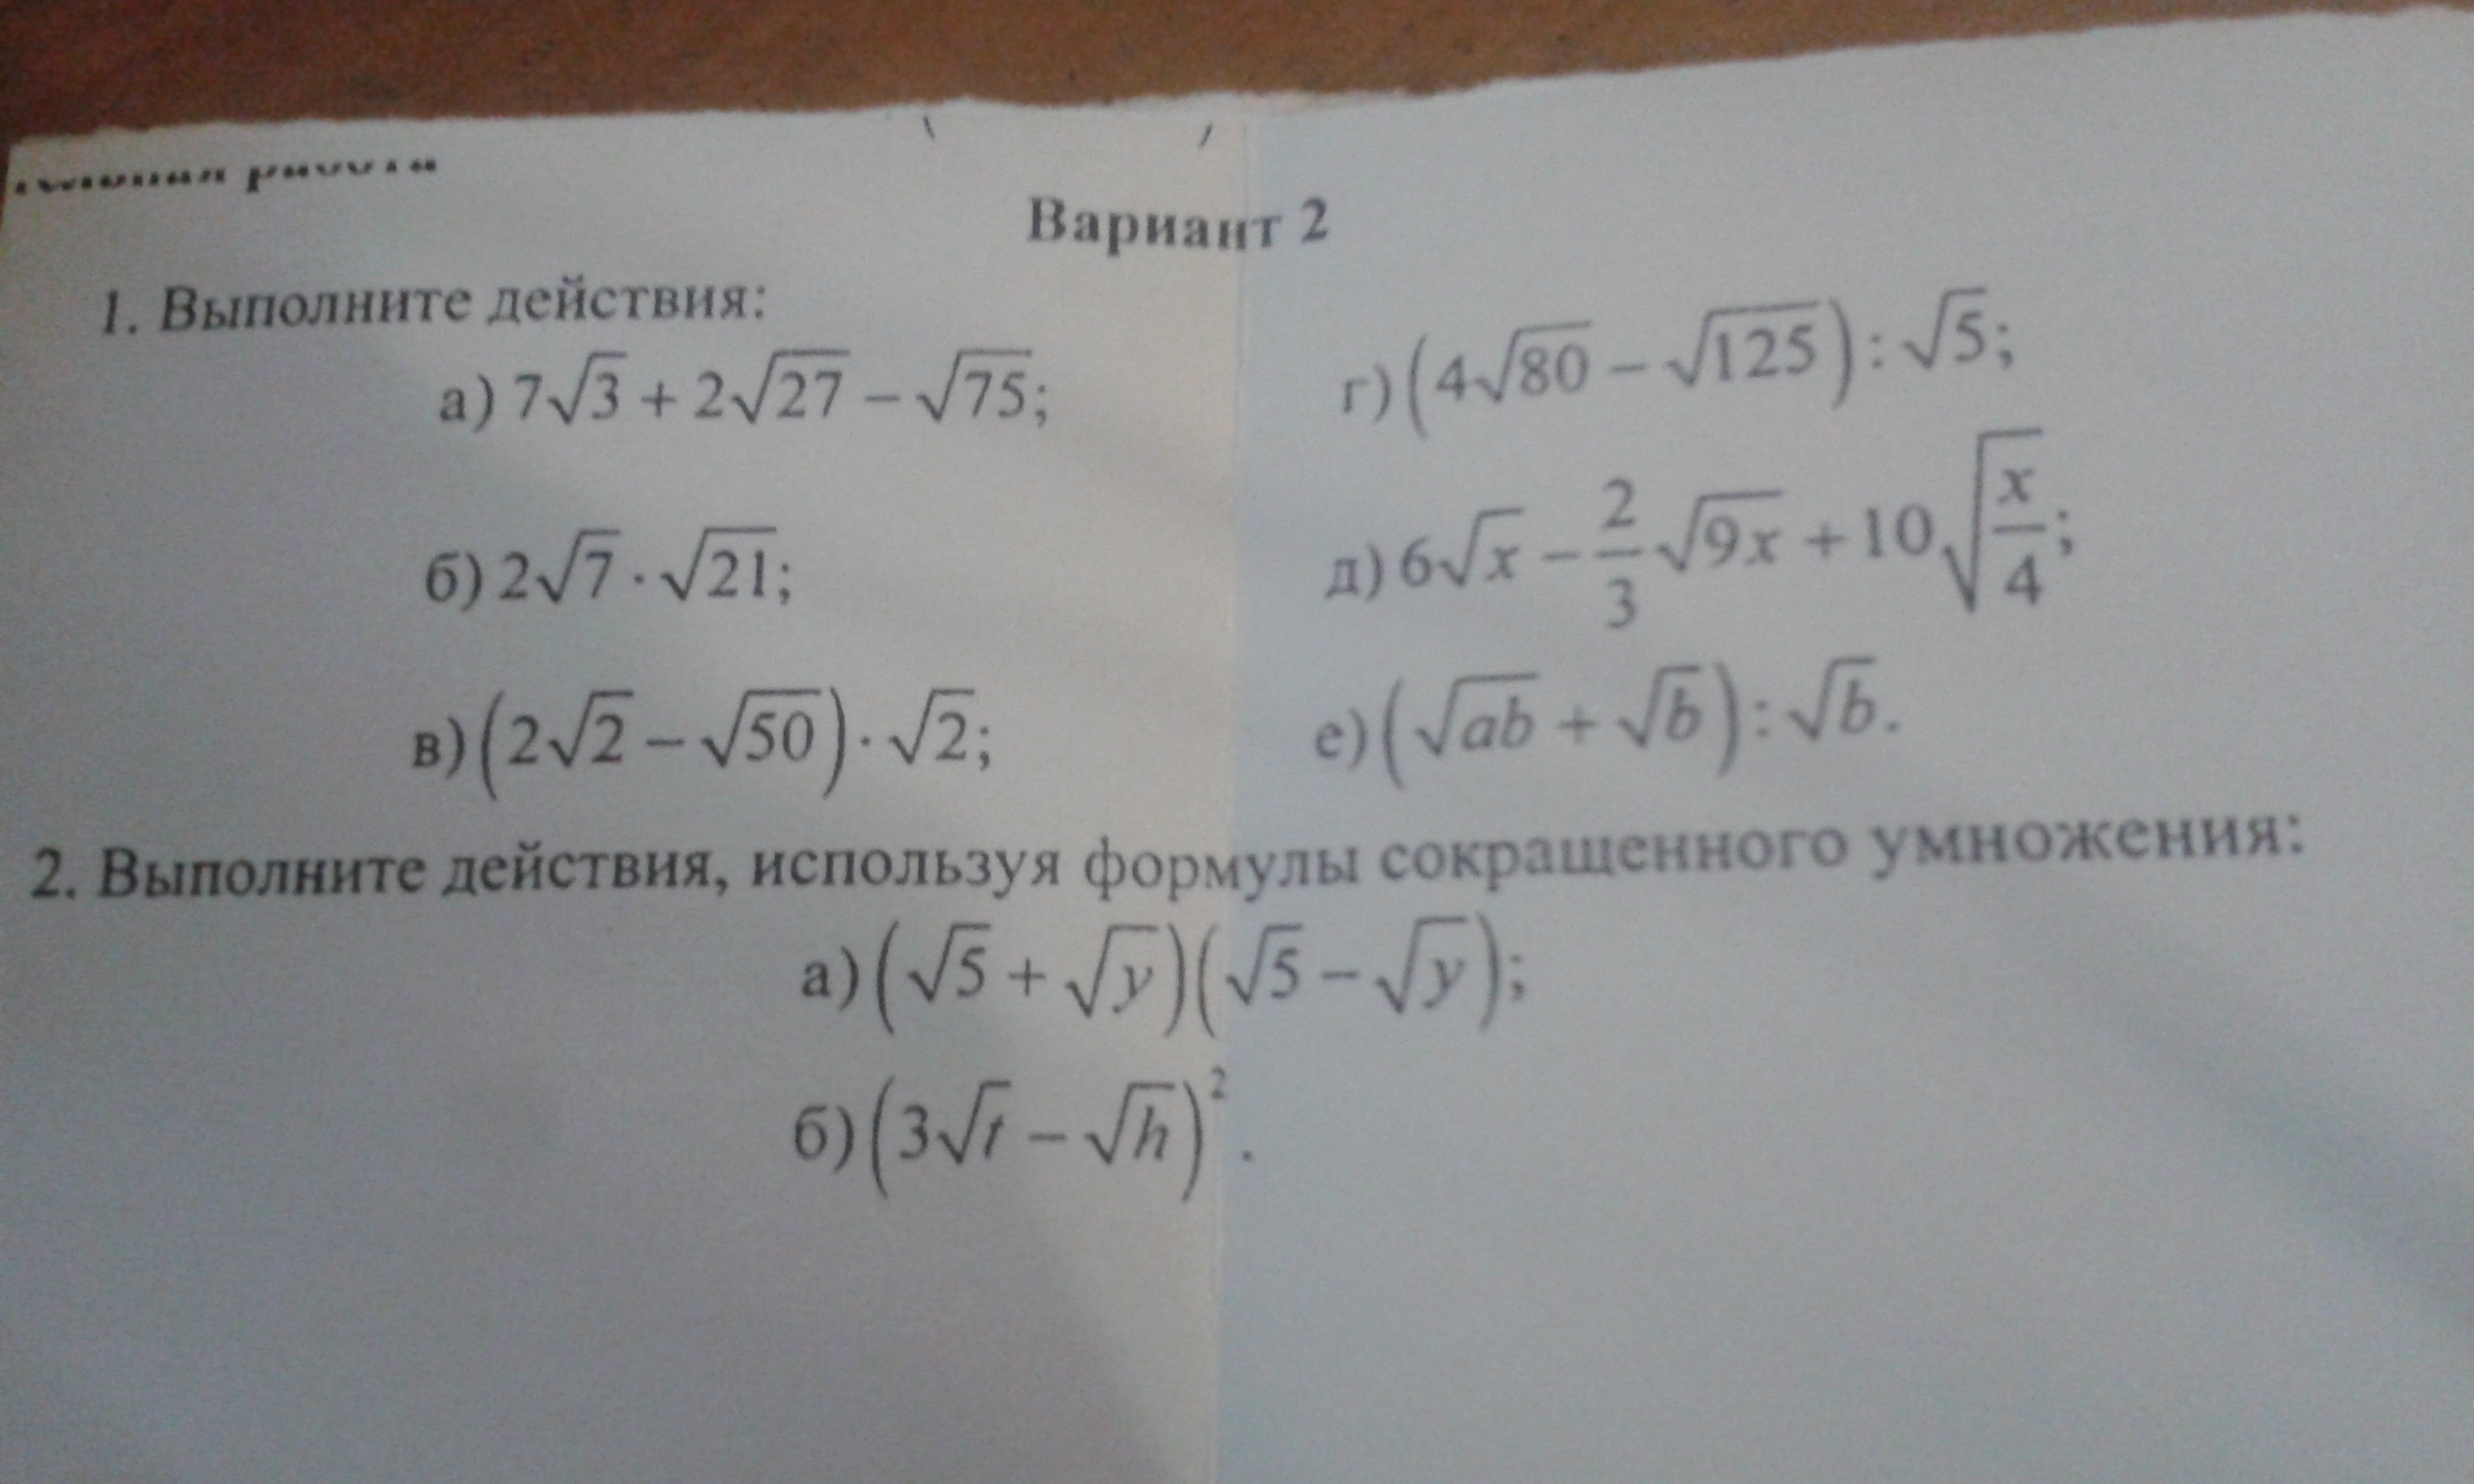 Вариант 2
1. Выполните действия:
а) 7√3 + 2√27 − √75;
б) 2√7 · √21;
в) (2√2 − √50) · √2;
г) (4√80 − √125) : √5;
д) 6√x − 2/3 √9x + 10√(x/4);
е) (√ab + √b) : √b.
2. Выполните действия, используя формулы сокращенного умножения:
а) (√5 + √y)(√5 − √y);
б) (3√t − √h)².